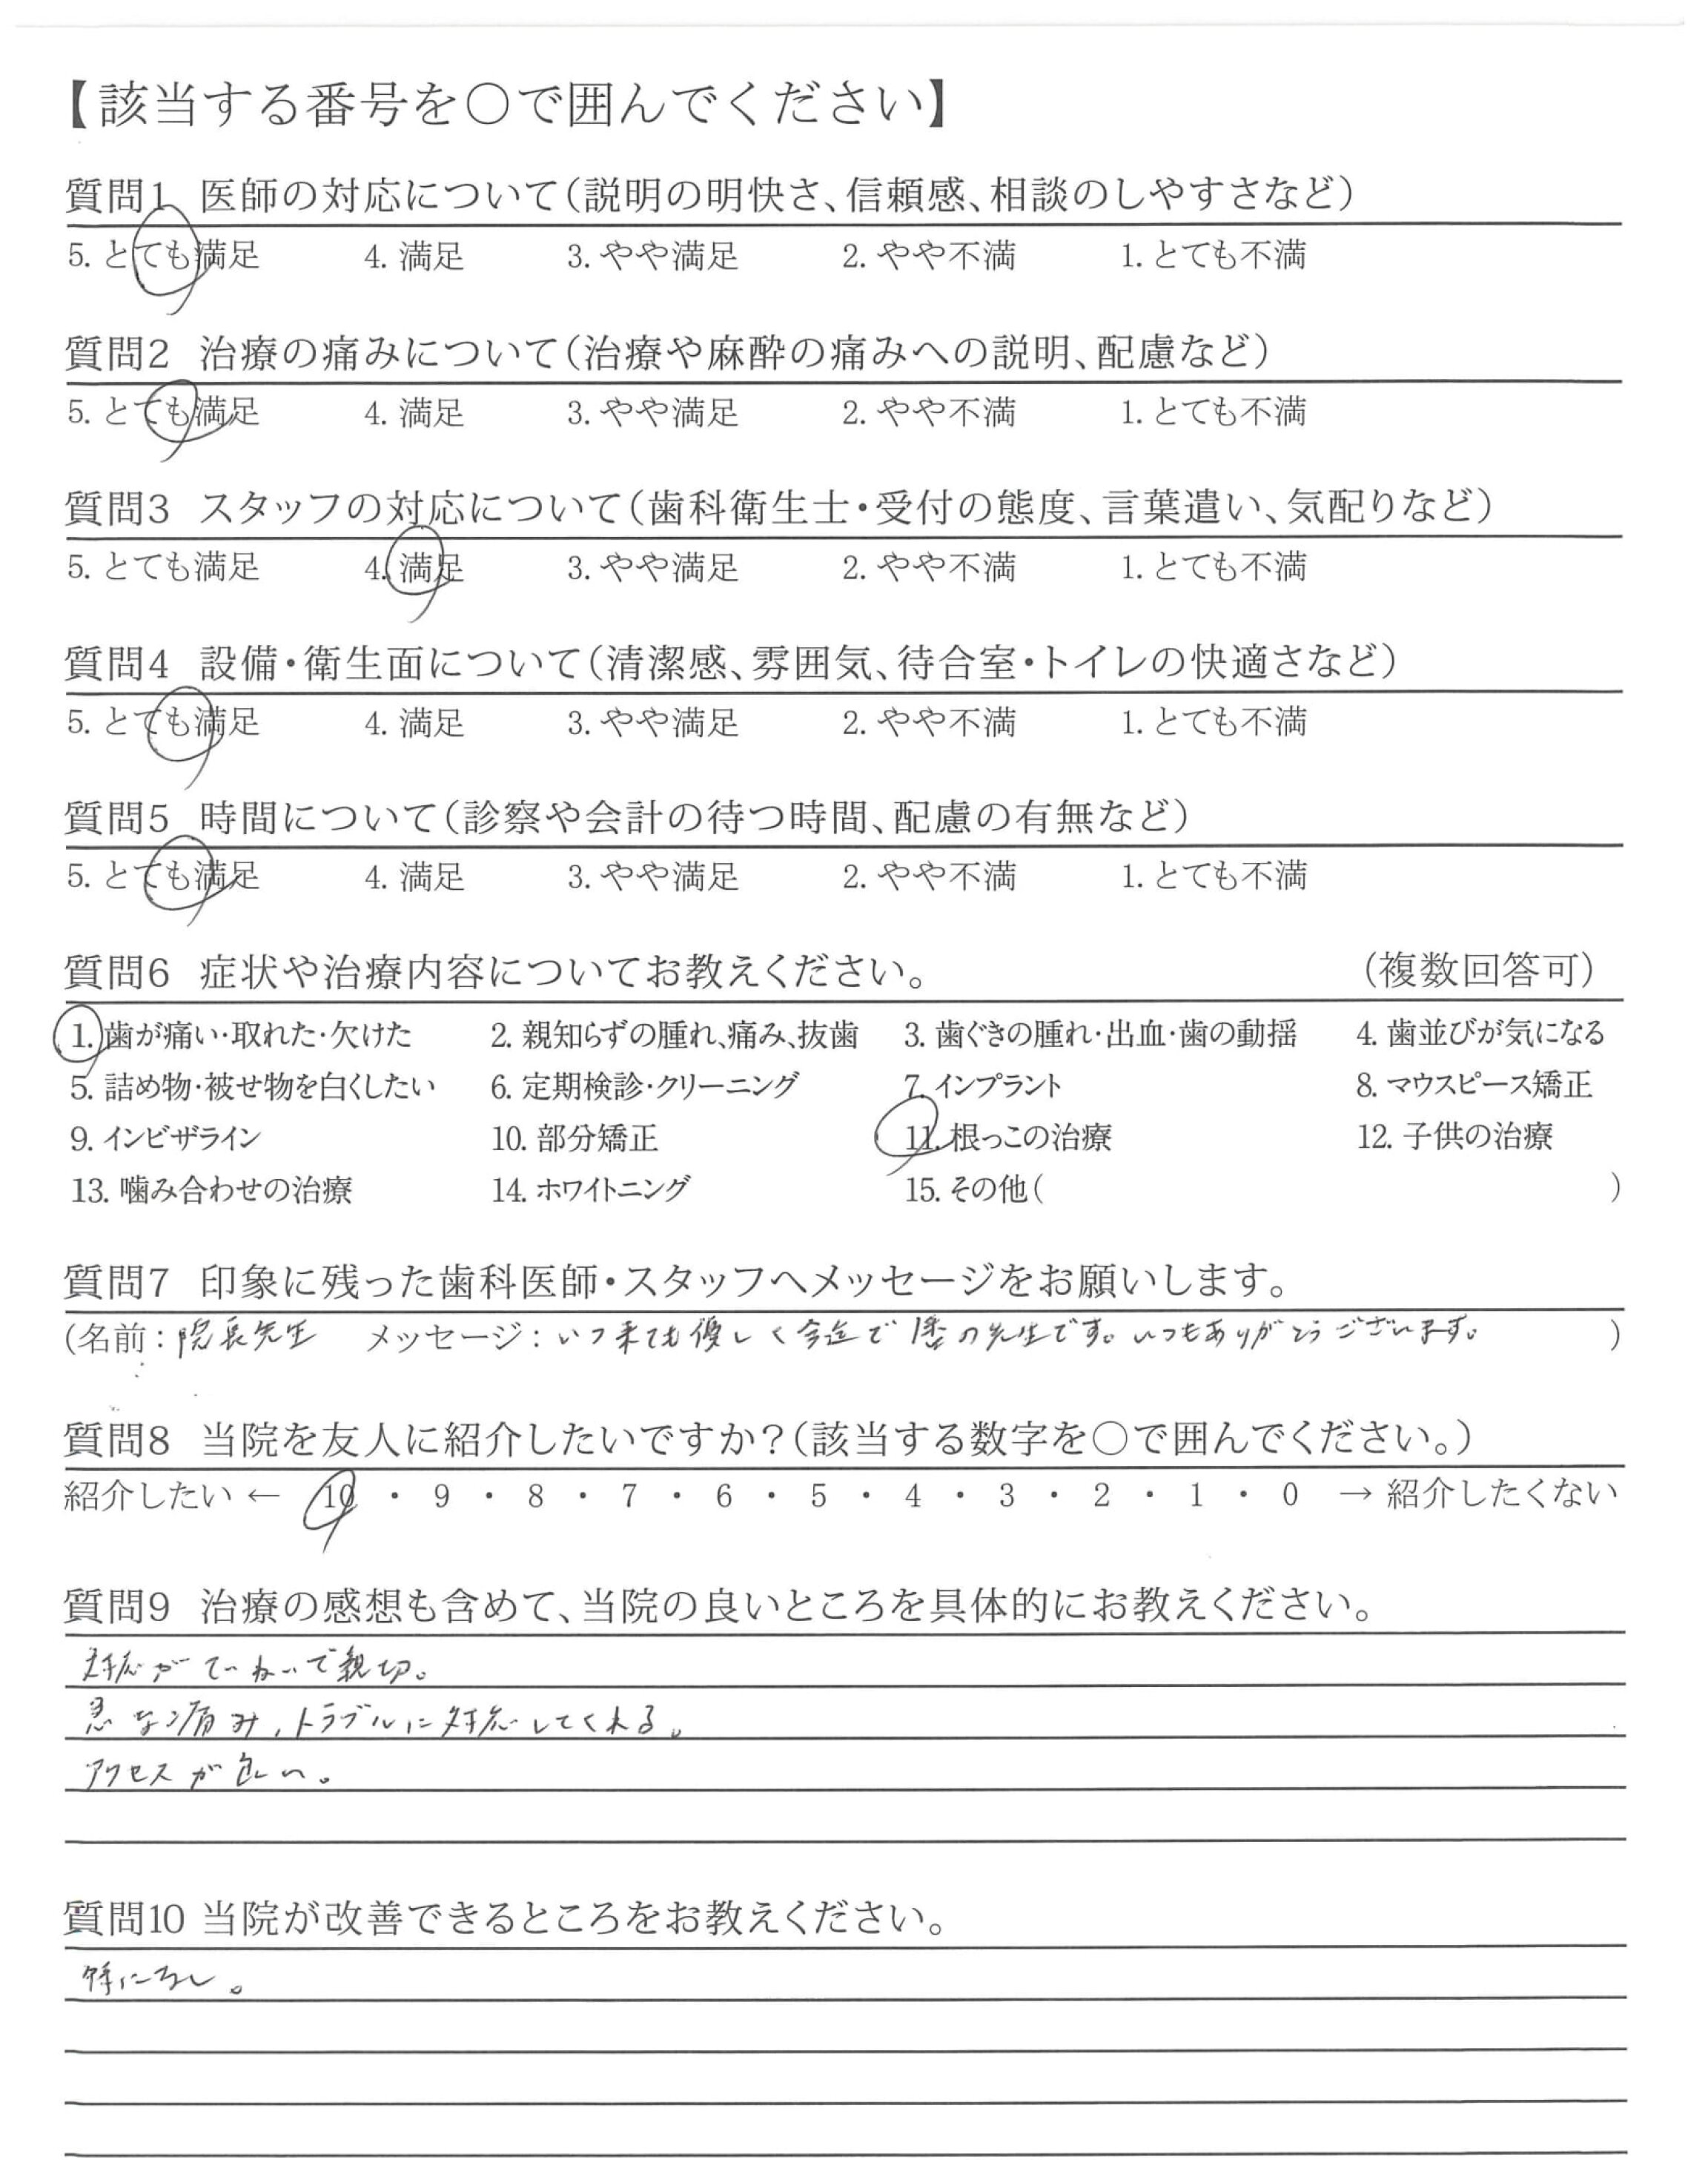 【該当する番号を○で囲んでください】
質問1 医師の対応について(説明の明快さ、信頼感、相談のしやすさなど)
5. とても満足 4. 満足 3. やや満足 2. やや不満 1. とても不満
質問2 治療の痛みについて(治療や麻酔の痛みへの説明、配慮など)
5. とても満足 4. 満足 3. やや満足 2. やや不満 1. とても不満
質問3 スタッフの対応について(歯科衛生士・受付の態度、言葉遣い、気配りなど)
5. とても満足 4. 満足 3. やや満足 2. やや不満 1. とても不満
質問4 設備・衛生面について(清潔感、雰囲気、待合室・トイレの快適さなど)
5. とても満足 4. 満足 3. やや満足 2. やや不満 1. とても不満
質問5 時間について(診察や会計の待つ時間、配慮の有無など)
5. とても満足 4. 満足 3. やや満足 2. やや不満 1. とても不満
質問6 症状や治療内容についてお教えください。 (複数回答可)
1. 歯が痛い・取れた・欠けた 2. 親知らずの腫れ、痛み、抜歯 3. 歯ぐきの腫れ・出血・歯の動揺 4. 歯並びが気になる
5. 詰め物・被せ物を白くしたい 6. 定期検診・クリーニング 7. インプラント 8. マウスピース矯正
9. インビザライン 10. 部分矯正 11. 根っこの治療 12. 子供の治療
13. 噛み合わせの治療 14. ホワイトニング 15. その他( )
質問7 印象に残った歯科医師・スタッフへメッセージをお願いします。
(名前：院長先生 メッセージ：いつ来ても優しく今迄で1番の先生です。いつもありがとうございます。 )
質問8 当院を友人に紹介したいですか？(該当する数字を○で囲んでください。)
紹介したい ← 10 ・ 9 ・ 8 ・ 7 ・ 6 ・ 5 ・ 4 ・ 3 ・ 2 ・ 1 ・ 0 → 紹介したくない
質問9 治療の感想も含めて、当院の良いところを具体的にお教えください。
対応がていねいで親切。
急な痛み、トラブルに対応してくれる。
アクセスが良い。
質問10 当院が改善できるところをお教えください。
特になし。